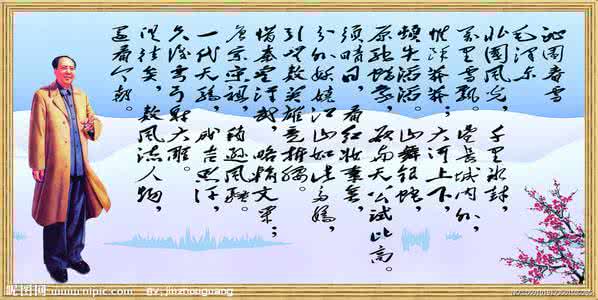 沁园春雪
毛泽东
北国风光，千里冰封，
万里雪飘。望长城内外，
惟余莽莽；大河上下，
顿失滔滔。山舞银蛇，
原驰蜡象，欲与天公试比高。
须晴日，看红妆素裹，
分外妖娆。江山如此多娇，
引无数英雄竞折腰。
惜秦皇汉武，略输文采；
唐宗宋祖，稍逊风骚。
一代天骄，成吉思汗，
只识弯弓射大雕。
俱往矣，数风流人物，
还看今朝。
昵图网
www.nipic.com